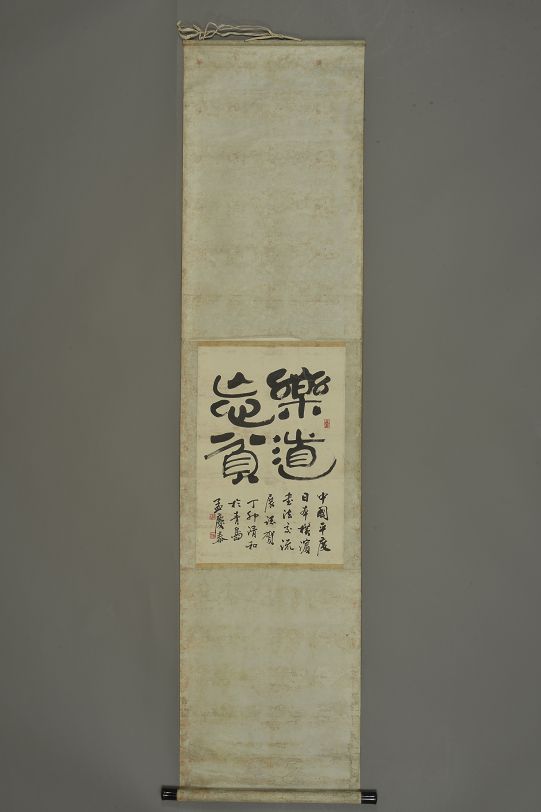 樂道
忘貧
中國平度
日本橫濱
書法交流
展誌賀
丁卯清和
於青島
孟慶泰